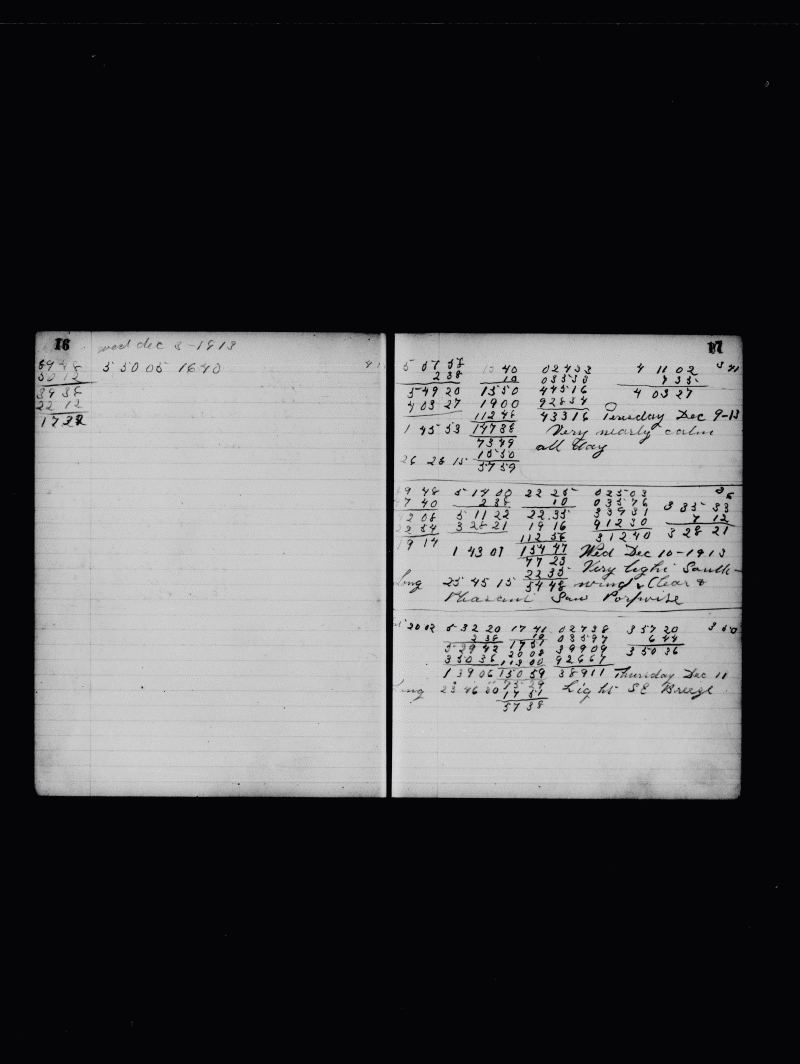 16
wed dec 3-1913
5 50 05 1640
50 12
39 36
22 12
17
17
5 07 57 40 02433 4 11 02
2 38 10 03530 7 35
5 49 20 1550 44516 4 03 27
4 03 27 1900 92834
11246 43316 Tuesday Dec 9-13
1 45 53 14736 Very nearly calm
7349 all day
26 28 15 1550
5759
9 48 5 14 00 22 25 02503
7 40 2 38 10 33931 3 35 33
2 08 5 11 22 22 35 41230 7 12
22 54 3 28 21 19 16 31240 3 28 21
19 14 112 56
1 43 01 154 47 Wed Dec 10-1913
77 23 Very light South
22 35 wind & Clear &
Long 25 45 15 54 48
Pleasant Saw Porpoise
20 02 5 32 20 17 41 02738 3 57 20 3 50
2 38 10 03597 6 44
5 29 42 17 51 39909 3 50 36
3 50 36 20 08 92667
113 00
1 39 06 150 59 38911 Thursday Dec 11
Long 23 46 30 75 29 Light SE Breeze
17 51
57 38